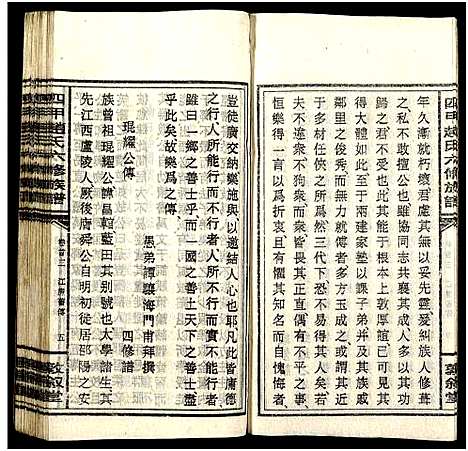 四甲趙氏六修族譜
年久漸就朽壞君慮其無以妥先靈爰糾族人修葺
之私不敢擅公也因同志共襄其成
亦不可磨也此其能于根本上敦厚誼已可見其
得大體如此至于兩建家塾以課子弟並并及其
鄰里之俊秀而無力就傅者多方玉成之其汲汲
于多材任此又之所爲然三代下恐不易得其人矣若
其居鄉也恂恂儒雅和藹可親間有不平之事
恒樂得一言以爲折衷且有懼其知而自愧悔者
豈徒廣交納樂施與以邀結人心也耶凡此皆庸德
之行人所能行而不行者人所不能行而實不能行也
雖曰一鄉之善士乎而一國之善士天下之善士盡
乎此矣故樂爲之傳
愚弟譚襄海門甫拜撰
琨耀公傳
四修譜
族曾祖琨耀公諱昌乾藍田其别號也太學諸生其
先江西盧陵人厥後唐舜公自明初徙居邵陽之安
四甲趙氏六修族譜
卷首三
五
敦敘堂
敦敘堂